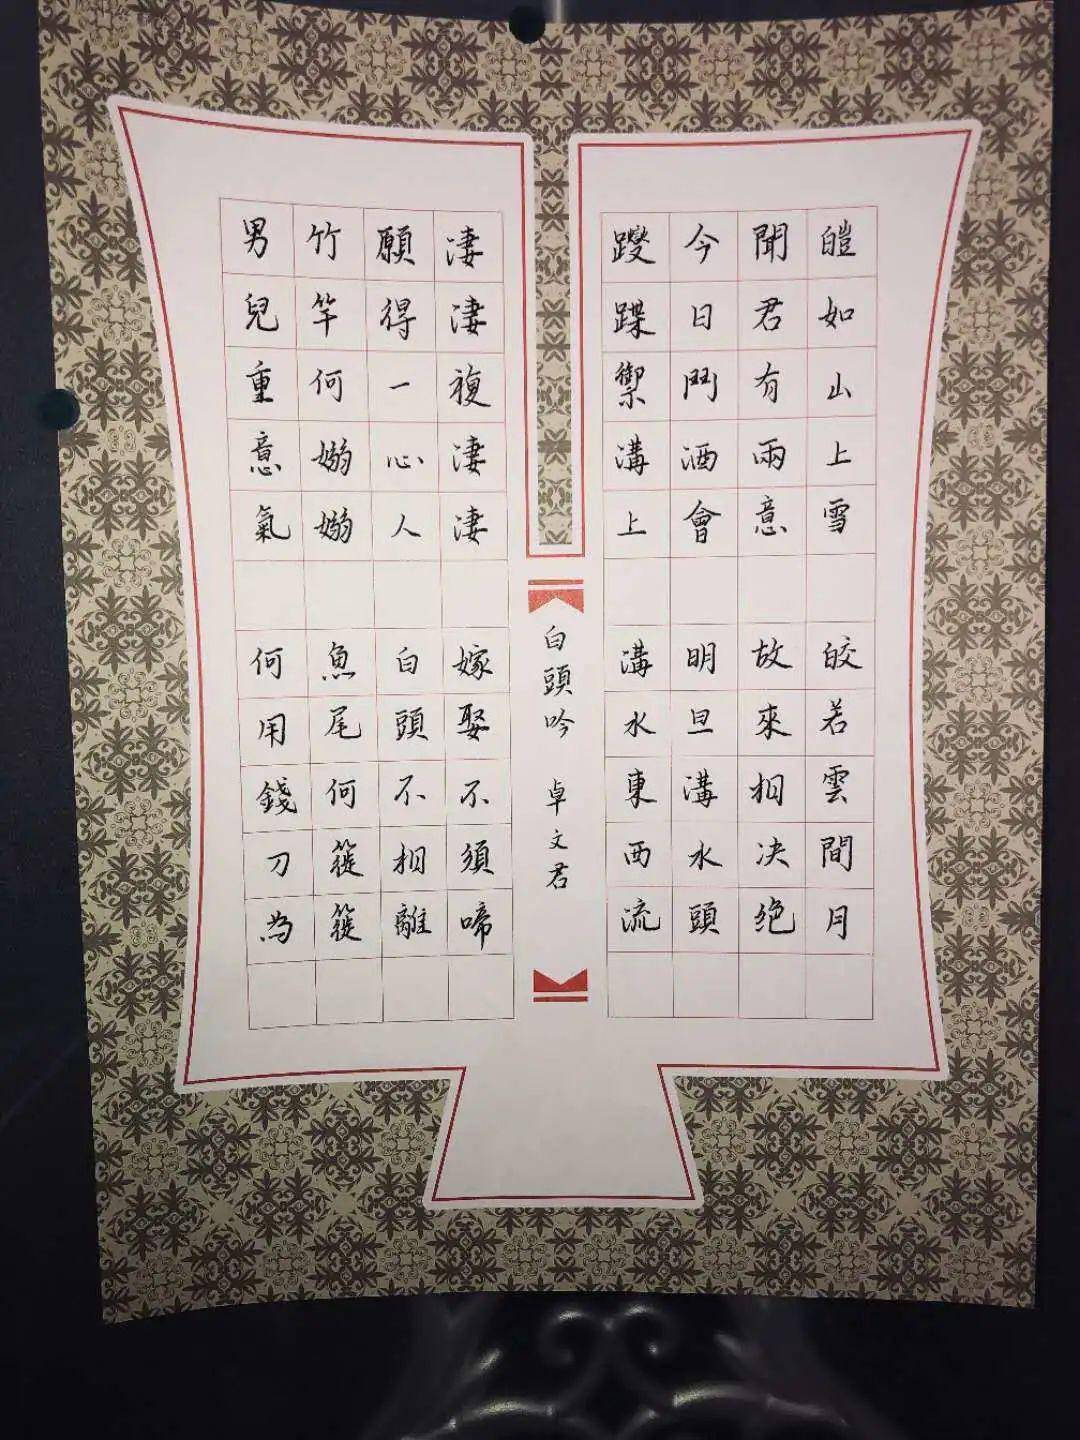 皚如山上雪 皎若雲間月
聞君有兩意 故來相决绝
今日鬥酒會 明旦溝水頭
躞蹀禦溝上 溝水東西流
白頭吟 卓文君
凄凄複凄凄 嫁娶不須啼
願得一心人 白頭不相離
竹竿何嫋嫋 魚尾何簁簁
男兒重意氣 何用錢刀為